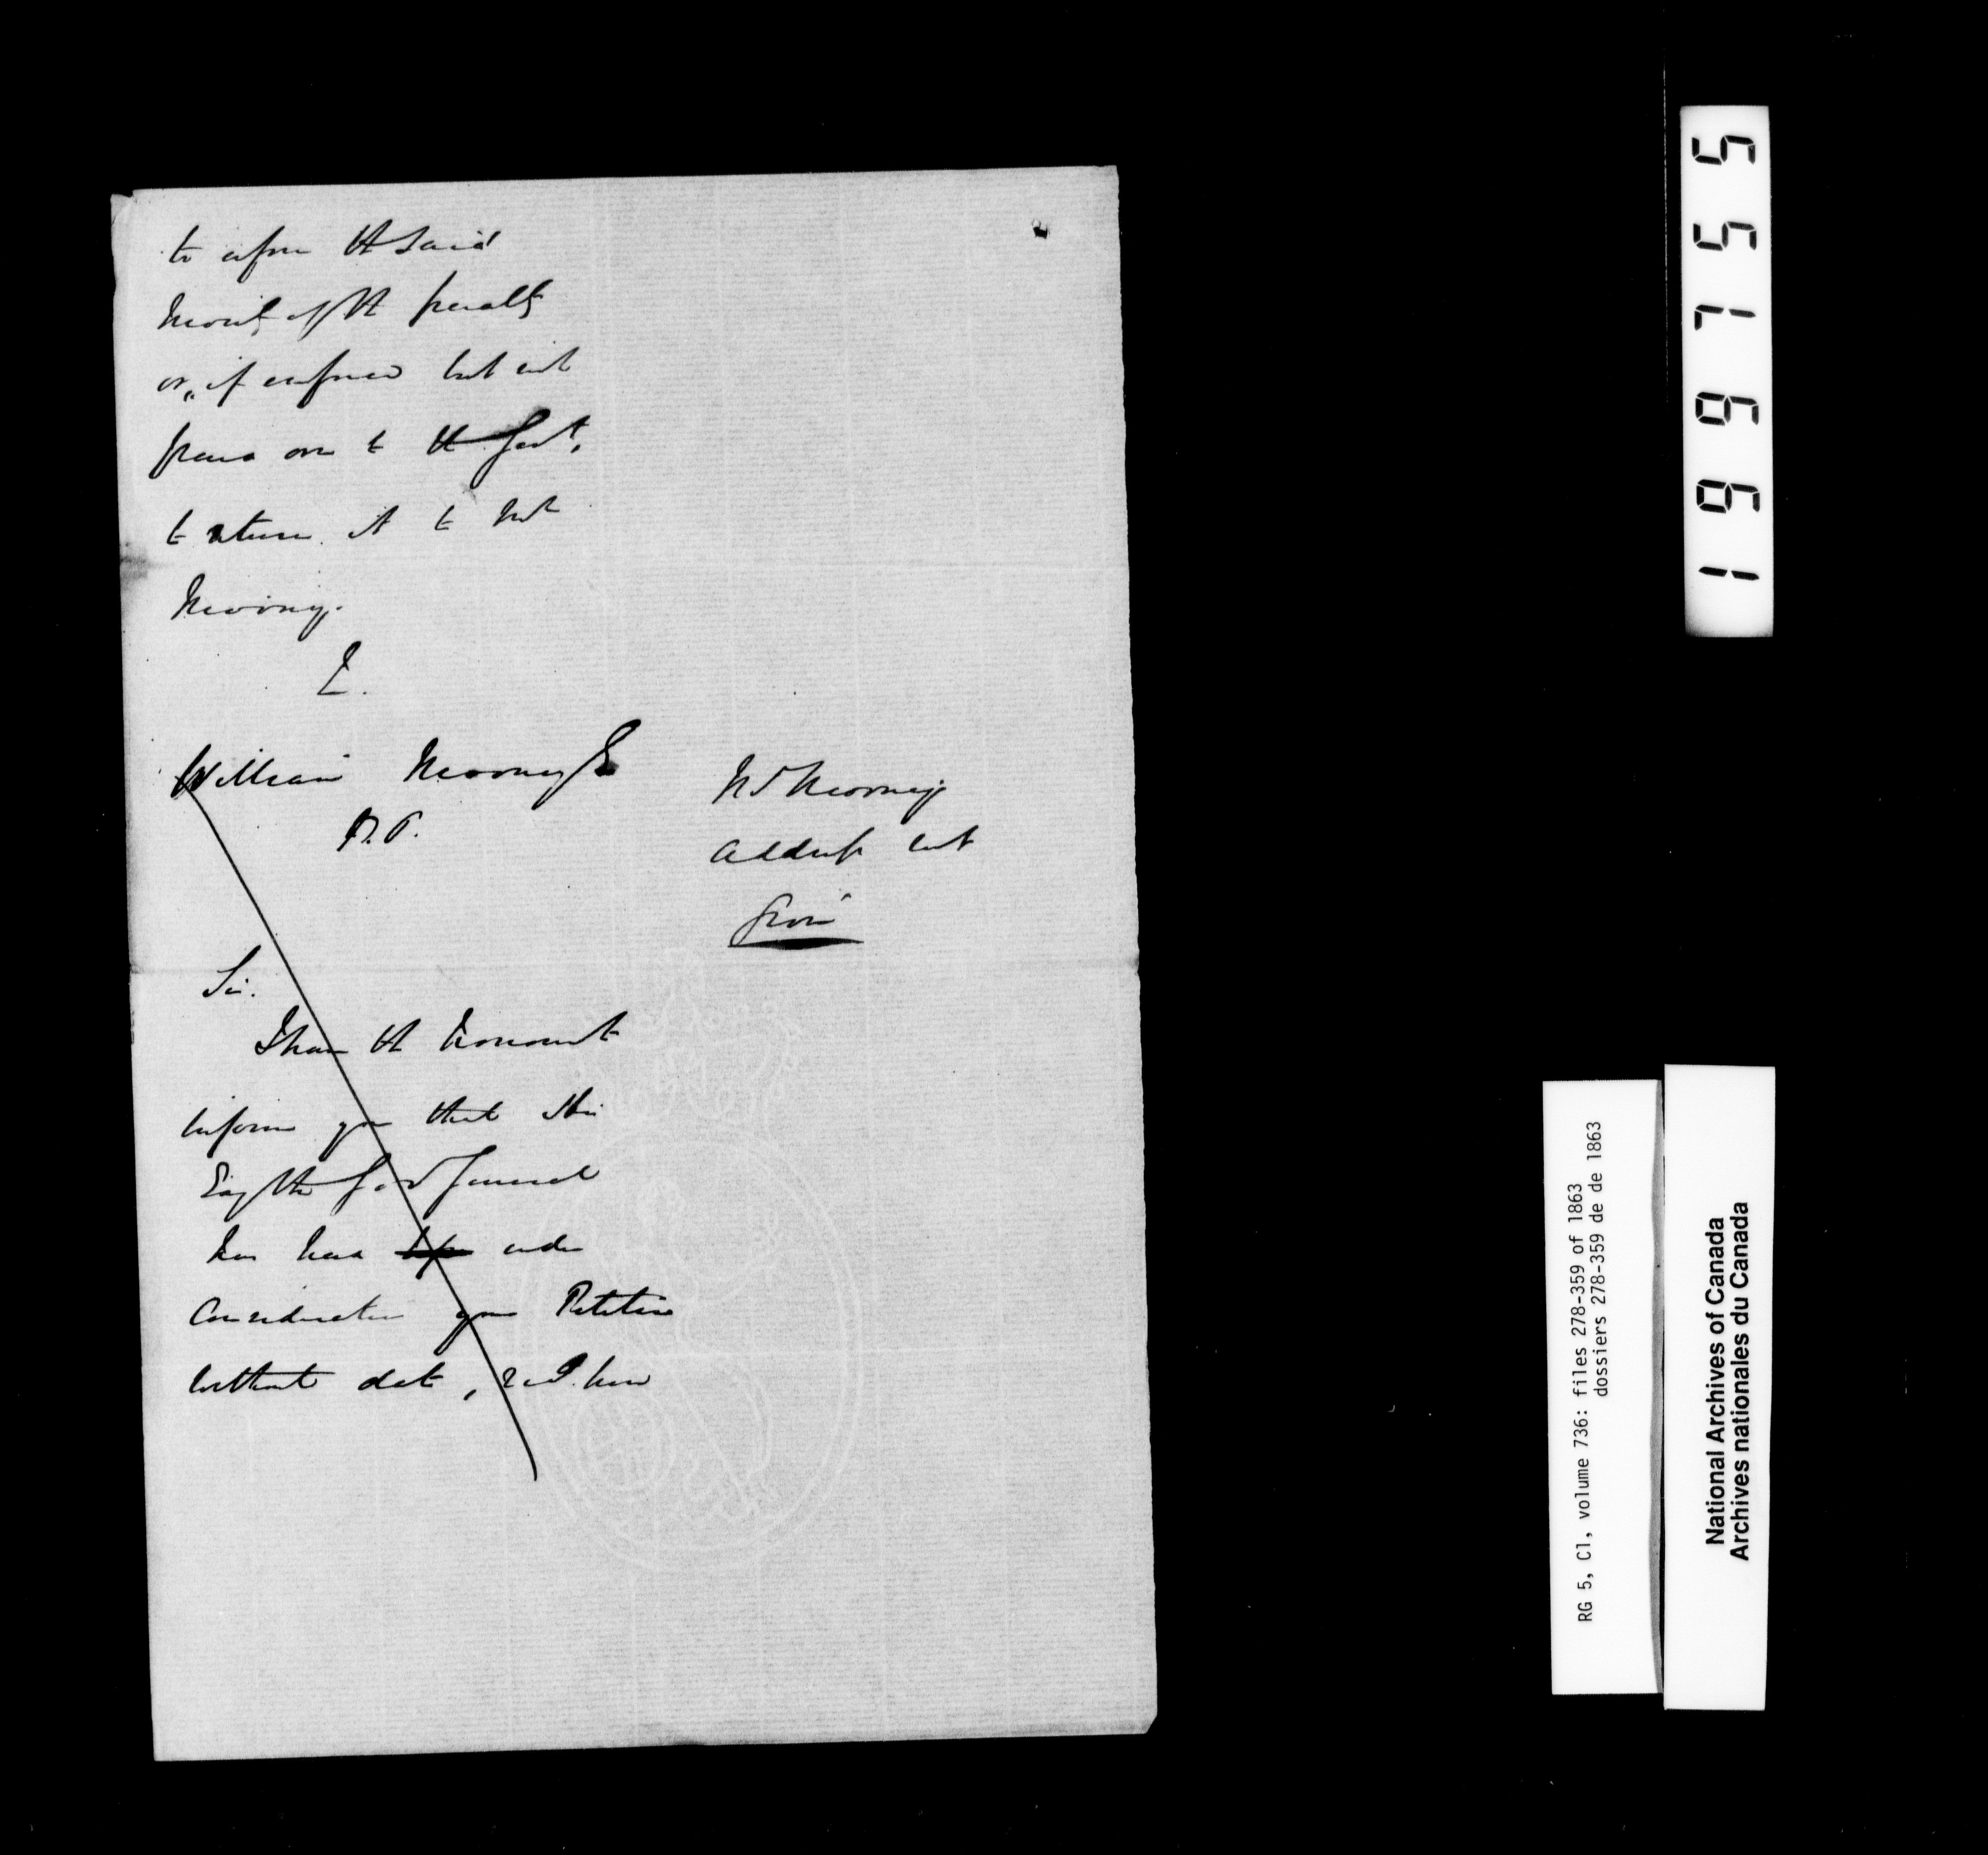 to enforce the said
moiety of the penalty
or, if enforced but not
paid over to the Govt,
to return it to Mr
Mooney.
E.
William Mooney E
Mr Mooney's
address not
given
Sir.
I have the honour to
inform you that His
Exy the Gov General
has had under
Consideration your Petition
without date, and have
RG 5, C1, volume 736: files 278-359 of 1863
dossiers 278-359 de de 1863
National Archives of Canada
Archives nationales du Canada
1991755